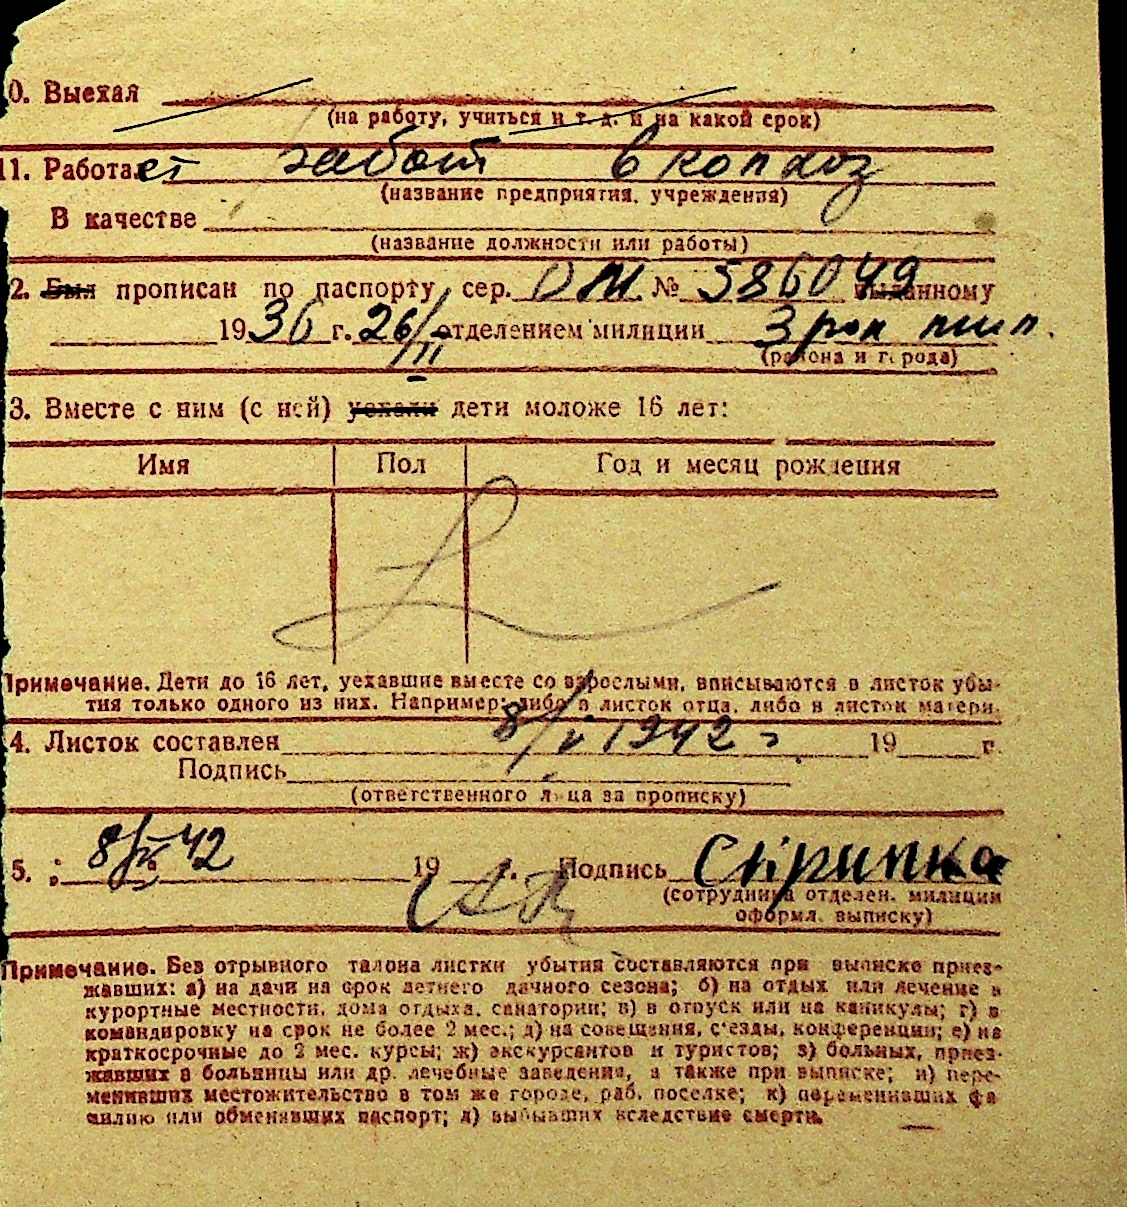 0. Выехал
(на работу, учиться и т. д. и на какой срок)
11. Работает
(название предприятия, учреждения)
В качестве
(название должности или работы)
2. Был прописан по паспорту сер. № 586049 выданному
1936 г. 26/II отделением милиции 3
(района и города)
3. Вместе с ним (с ней) уехали дети моложе 16 лет:
Имя Пол Год и месяц рождения
Примечание. Дети до 16 лет, уехавшие вместе со взрослыми, вписываются в листок убы-
тия только одного из них. Например: либо в листок отца, либо в листок матери.
4. Листок составлен 8/V 1942 г 19 г.
Подпись
(ответственного лица за прописку)
5. 8/IV 42 19 г. Подпись
(сотрудника отделен. милиции
оформл. выписку)
Примечание. Без отрывного талона листки убытия составляются при выписке приез-
жавших: а) на дачи на срок летнего дачного сезона; б) на отдых или лечение в
курортные местности, дома отдыха, санатории; в) в отпуск или на каникулы; г) в
командировку на срок не более 2 мес.; д) на совещания, с'езды, конференции; е) на
краткосрочные до 2 мес. курсы; ж) экскурсантов и туристов; з) больных, приез-
жавших в больницы или др. лечебные заведения, а также при выписке; и) пере-
менивших местожительство в том же городе, раб. поселке; к) переменивших фа
милию или обменявших паспорт; л) выбывших вследствие смерти.